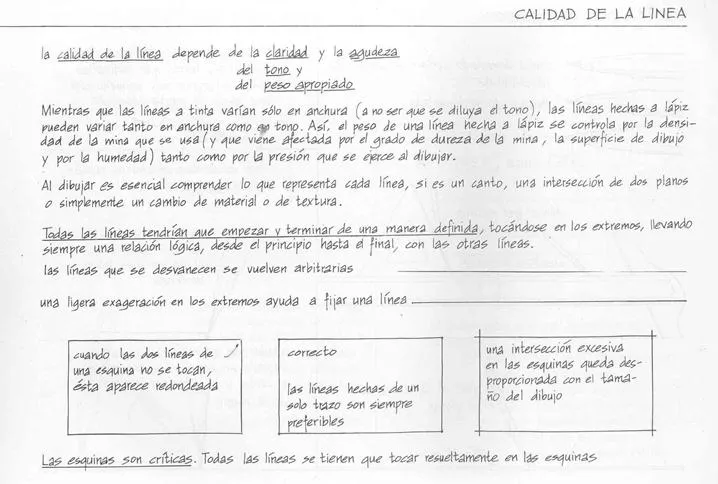 CALIDAD DE LA LINEA
la calidad de la línea depende de la claridad y la agudeza
del tono y
del peso apropiado
Mientras que las líneas a tinta varían sólo en anchura (a no ser que se diluya el tono), las líneas hechas a lápiz
pueden variar tanto en anchura como en tono. Así, el peso de una línea hecha a lápiz se controla por la densi-
dad de la mina que se usa (y que viene afectada por el grado de dureza de la mina, la superficie de dibujo
y por la humedad) tanto como por la presión que se ejerce al dibujar.
Al dibujar es esencial comprender lo que representa cada línea, si es un canto, una intersección de dos planos
o simplemente un cambio de material o de textura.
Todas las líneas tendrían que empezar y terminar de una manera definida, tocándose en los extremos, llevando
siempre una relación lógica, desde el principio hasta el final, con las otras líneas.
las líneas que se desvanecen se vuelven arbitrarias
una ligera exageración en los extremos ayuda a fijar una línea
cuando las dos líneas de
una esquina no se tocan,
ésta aparece redondeada
correcto
las líneas hechas de un
solo trazo son siempre
preferibles
una intersección excesiva
en las esquinas queda des-
proporcionada con el tama-
ño del dibujo
Las esquinas son críticas. Todas las líneas se tienen que tocar resueltamente en las esquinas